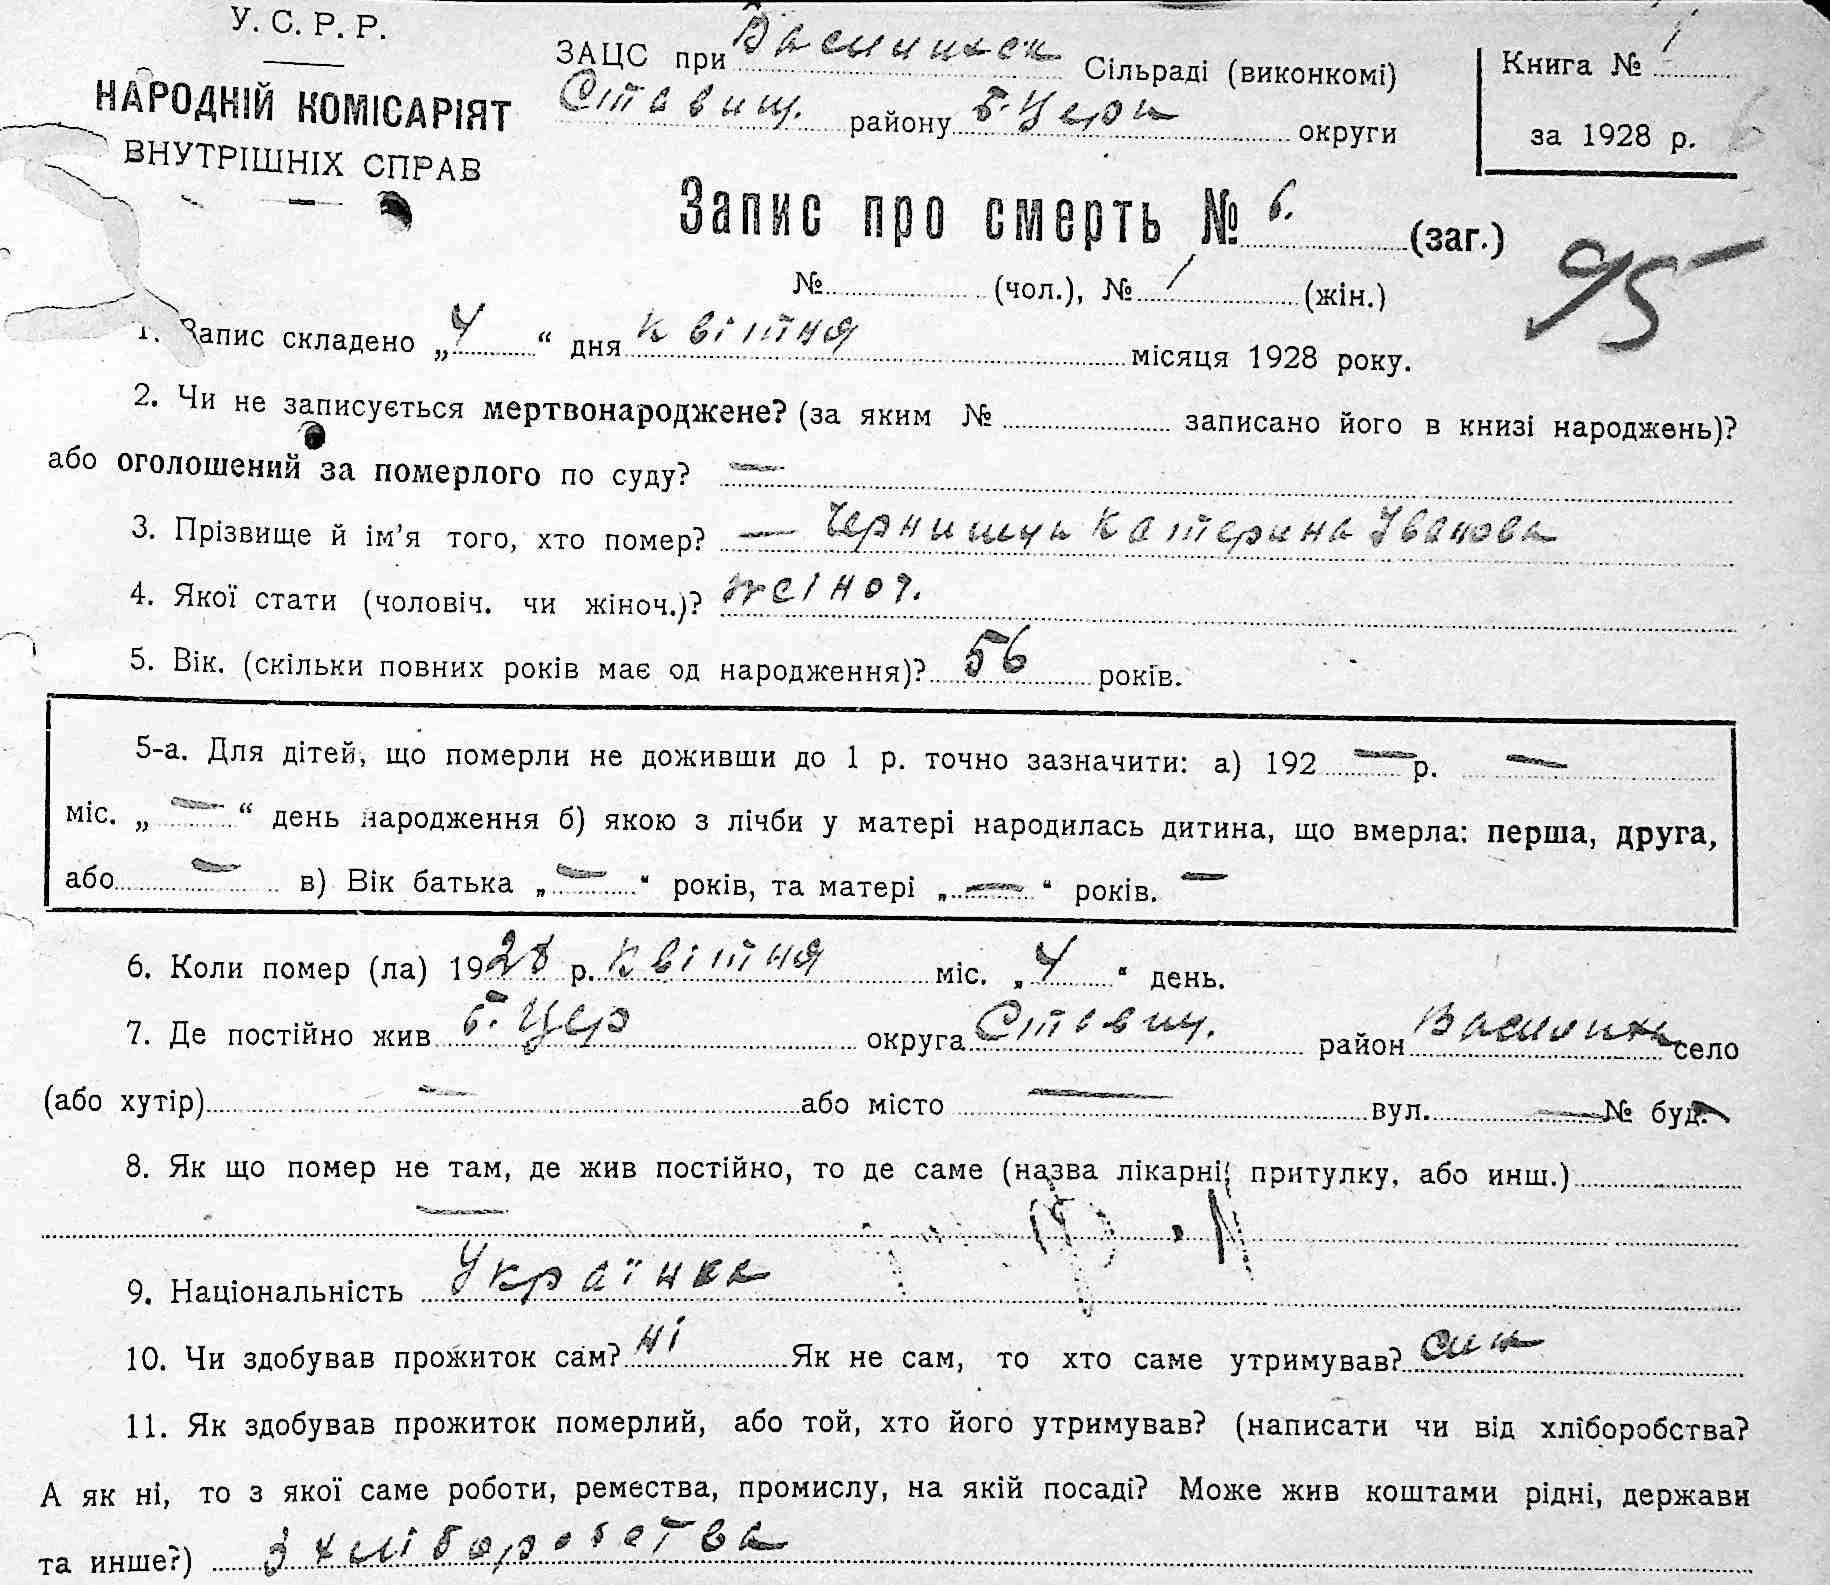 У. С. Р. Р.
НАРОДНІЙ КОМІСАРІЯТ
ВНУТРІШНІХ СПРАВ
ЗАЦС при Сільраді (виконкомі)
Ставищ. району Б. Церк округи
Книга № 1
за 1928 р.
Запис про смерть № 6. (заг.)
№ (чол.), № 1 (жін.)
95
1. Запис складено „4“ дня квітня місяця 1928 року.
2. Чи не записується мертвонароджене? (за яким № записано його в книзі народжень)?
або оголошений за померлого по суду? —
3. Прізвище й ім'я того, хто помер? — Чернишук Катерина Іванова
4. Якої стати (чоловіч. чи жіноч.)? жіноч.
5. Вік. (скільки повних років має од народження)? 56 років.
5-а. Для дітей, що померли не доживши до 1 р. точно зазначити: а) 192 — р. —
міс. „ — “ день народження б) якою з лічби у матері народилась дитина, що вмерла: перша, друга,
або — в) Вік батька „ — “ років, та матері „ — “ років. —
6. Коли помер (ла) 1928 р. квітня міс. „4“ день.
7. Де постійно жив Б. Цер округа Ставищ. район село
(або хутір) — або місто — вул. — № буд. —
8. Як що помер не там, де жив постійно, то де саме (назва лікарні, притулку, або инш.)
—
9. Національність Українка
10. Чи здобував прожиток сам? ні Як не сам, то хто саме утримував? син
11. Як здобував прожиток померлий, або той, хто його утримував? (написати чи від хліборобства?
А як ні, то з якої саме роботи, ремества, промислу, на якій посаді? Може жив коштами рідні, держави
та инше?) З хліборобства